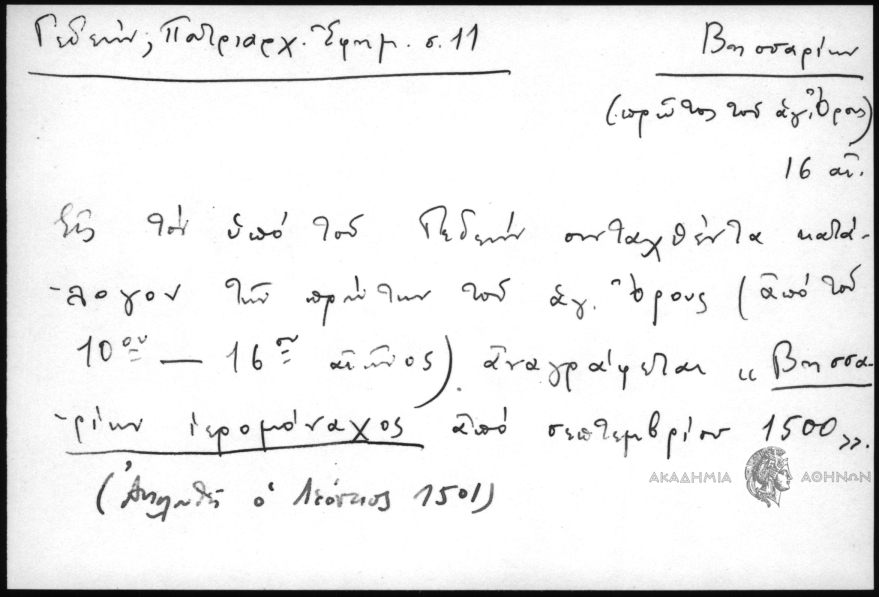 Γεδεών, Πατριαρχ. Ἐφημ. σ. 11
Βησσαρίων
(πρῶτος τοῦ ἁγ. Ὄρους)
16 αἰ.
Εἰς τὸν ὑπὸ τοῦ Γεδεὼν συνταχθέντα κατά-
-λογον τῶν πρώτων τοῦ ἁγ. Ὄρους (ἀπὸ τοῦ
10ου — 16ου αἰῶνος) ἀναγράφεται «Βησσα-
-ρίων ἱερομόναχος ἀπὸ σεπτεμβρίου 1500».
(Ἀκολουθεῖ ὁ Λεόντιος 1501)
ΑΚΑΔΗΜΙΑ ΑΘΗΝΩΝ